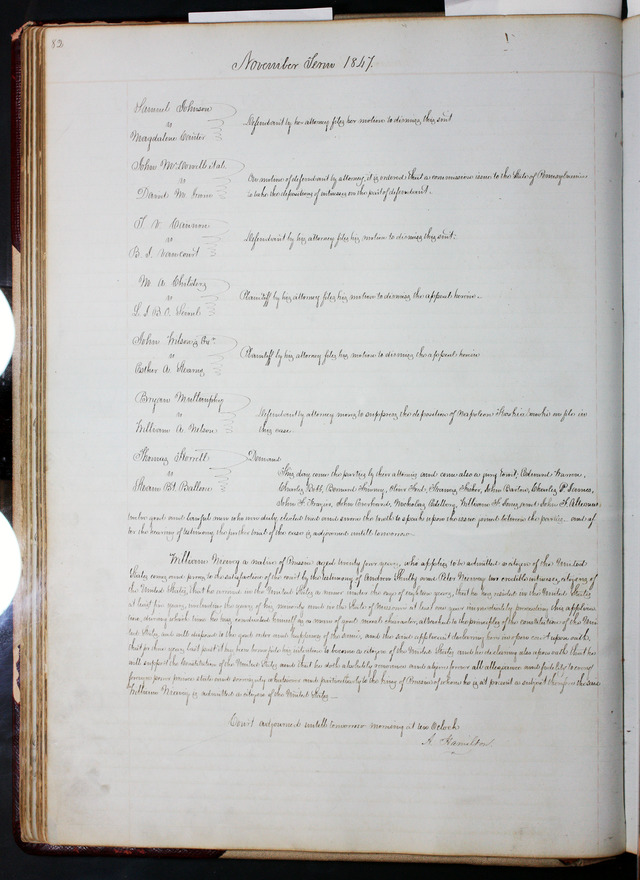 82
November Term 1847.
Samuel Johnson
vs
Magdalene
Defendant by her attorney files her motion to dismiss this suit
John McDowell &al
vs
David M.
On motion of defendant by attorney, it is ordered that a commission issue to the State of Pennsylvania
to take the depositions of witnesses on the part of defendant.
T. V. Cannon
vs
B. S. Vancourt
Defendant by his attorney files his motion to dismiss this suit.
M A Childers
vs
S. I B. O.
Plaintiff by his attorney files his motion to dismiss the appeal herein.
John Wilson's
vs
Esther A. Stearns
Plaintiff by his attorney files his motion to dismiss the appeal herein
Bryan Mullanphy
vs
William A. Nelson
Defendant by attorney moves to suppress the deposition of Napoleon on file in
this case
Thomas Sterrett
vs
Steam Bt. Balloon
Demand
This day come the parties by their attornies and come also a jury towit,
Charles Bobb, Bernard Finney, Oliver Ford, Francis Fisher, John Barton, Charles P.
John F. Frazer, John Gerhard, Nicholas William H. and John F.
twelve good and lawful men who were duly elected tried and sworn the truth to speak upon the issue joined between the parties. and af
ter the hearing of testimony the further trial of the case is adjourned until tomorrow.
William a native of Prussia aged twenty four years, who applies to be admitted a citizen of the United
States, comes and proves to the satisfaction of the court by the testimony of Andrew and Peter two credible witnesses, citizens of
the United States, that he arrived in the United States a minor under the age of eighteen years, that he has resided in the United States
at least five years, including the years of his minority and in the State of Missouri at least one year immediately preceding this applica
tion, during which time he has conducted himself as a man of good moral character, attached to the principles of the constitution of the Uni
ted States, and well disposed to the good order and happiness of the same, and the said applicant declaring here in open court upon oath,
that for three years last past it has been bona fide his intention to become a citizen of the United States, and he declaring also upon oath that he
will support the Constitution of the United States, and that he doth absolutely renounce and abjure forever all allegiance and fidelity to every
foreign power prince state and sovereignty whatsoever and particularly to the King of Prussia of whom he is at present a subject therefore the said
William is admitted a citizen of the United States.
Court adjourned until tomorrow morning at ten O'clock
A. Hamilton.